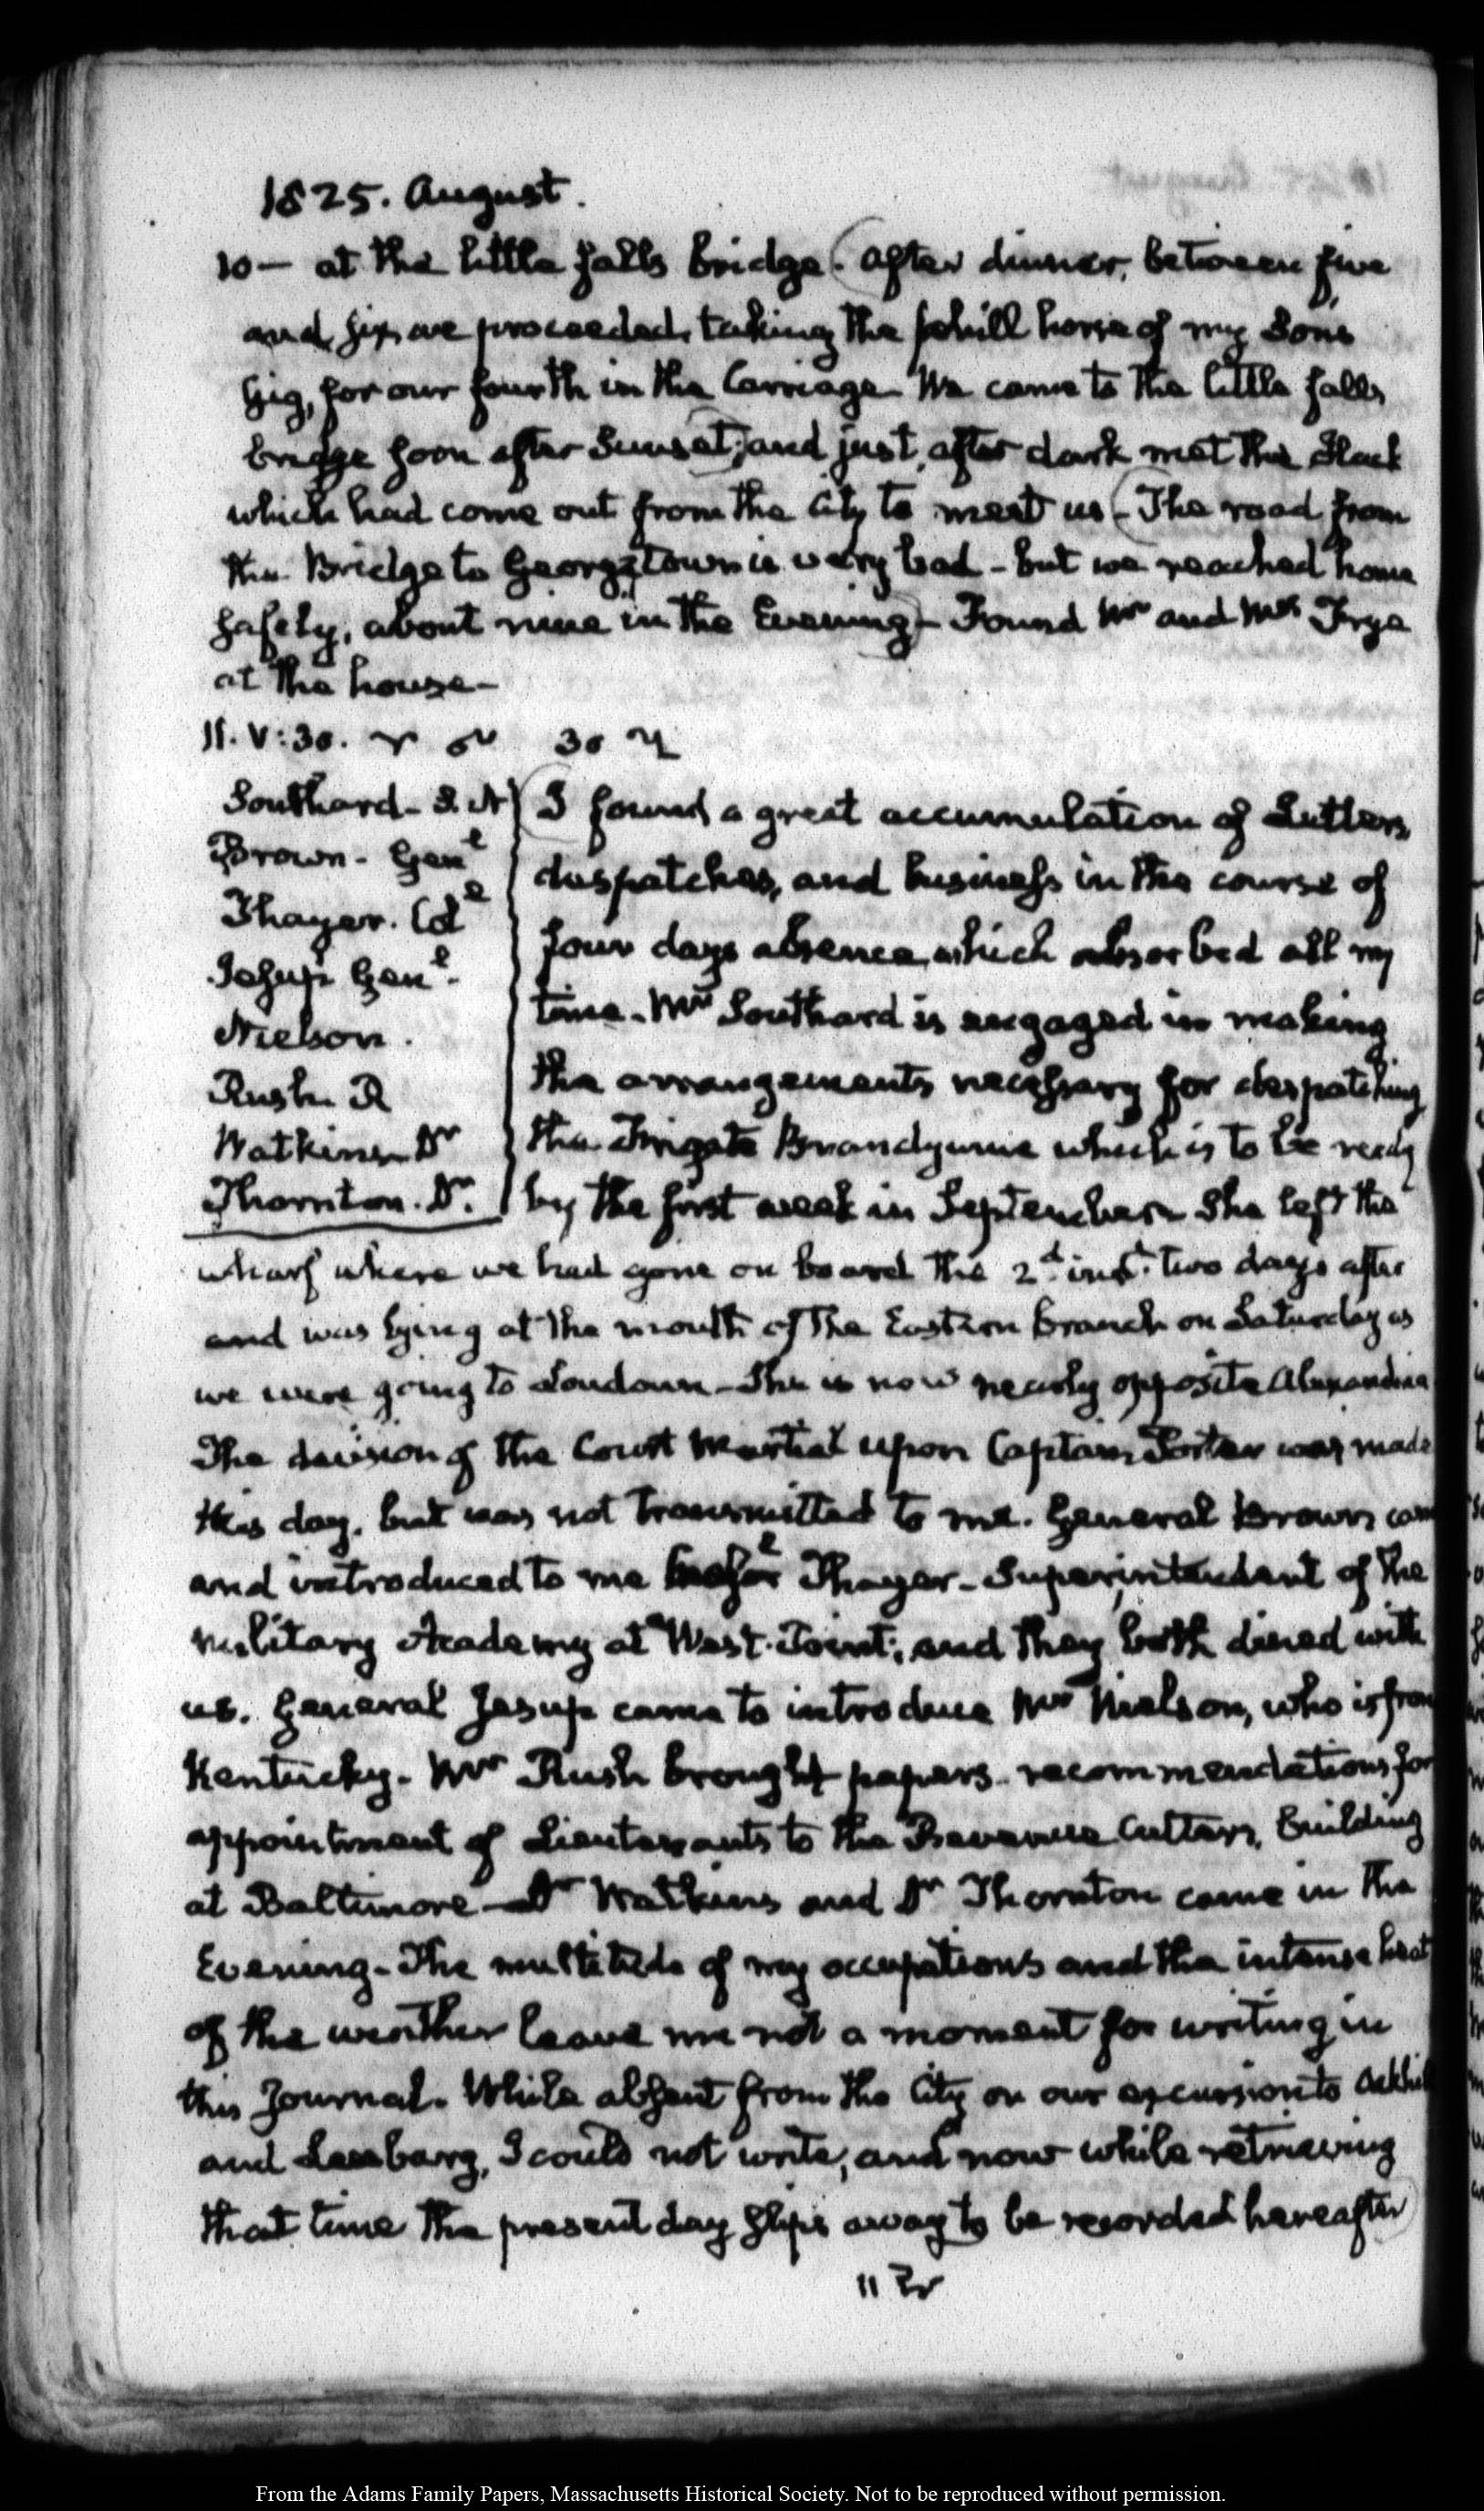 1825. August.
10— at the little falls bridge. After dinner, between five
and six we proceeded, taking the phill horse of my Sons
Gig, for our fourth in the Carriage. We came to the little falls
bridge soon after Sunset; and just after dark met the Hack
which had come out from the City to meet us — The road from
the Bridge to Georgetown is very bad — but we reached home
safely, about nine in the Evening — Found Mr and Mrs Frye
at the house —
11. V:30.
Southard — S. N
Brown — Genl
Thayer. Col
Jesup Genl.
Nielson.
Rush R
Watkins Dr
Thornton. Dr.
I found a great accumulation of Letters,
despatches, and business in the course of
four days absence, which absorbed all my
time. Mr Southard is engaged in making
the arrangements necessary for despatching
the Frigate Brandywine which is to be ready
by the first week in September. She left the
wharf where we had gone on board the 2d inst. two days after
and was lying at the mouth of the Eastern Branch on Saturday as
we were going to Loudoun — She is now nearly opposite Alexandria
The decision of the Court Martial upon Captain Porter was made
this day, but was not transmitted to me. General Brown came
and introduced to me Thayer — Superintendant of the
Military Academy at West-Point; and they both dined with
us. General Jesup came to introduce Mr Nielson, who is from
Kentucky. Mr Rush brought papers — recommendations for
appointment of Lieutenants to the Revenue Cutters, building
at Baltimore — Dr Watkins and Dr Thornton came in the
Evening — The multitude of my occupations and the intense heat
of the weather leave me not a moment for writing in
this Journal. While absent from the City on our excursion to Oakhill
and Leesburg, I could not write, and now while retrieving
that time the present day slips away to be recorded hereafter